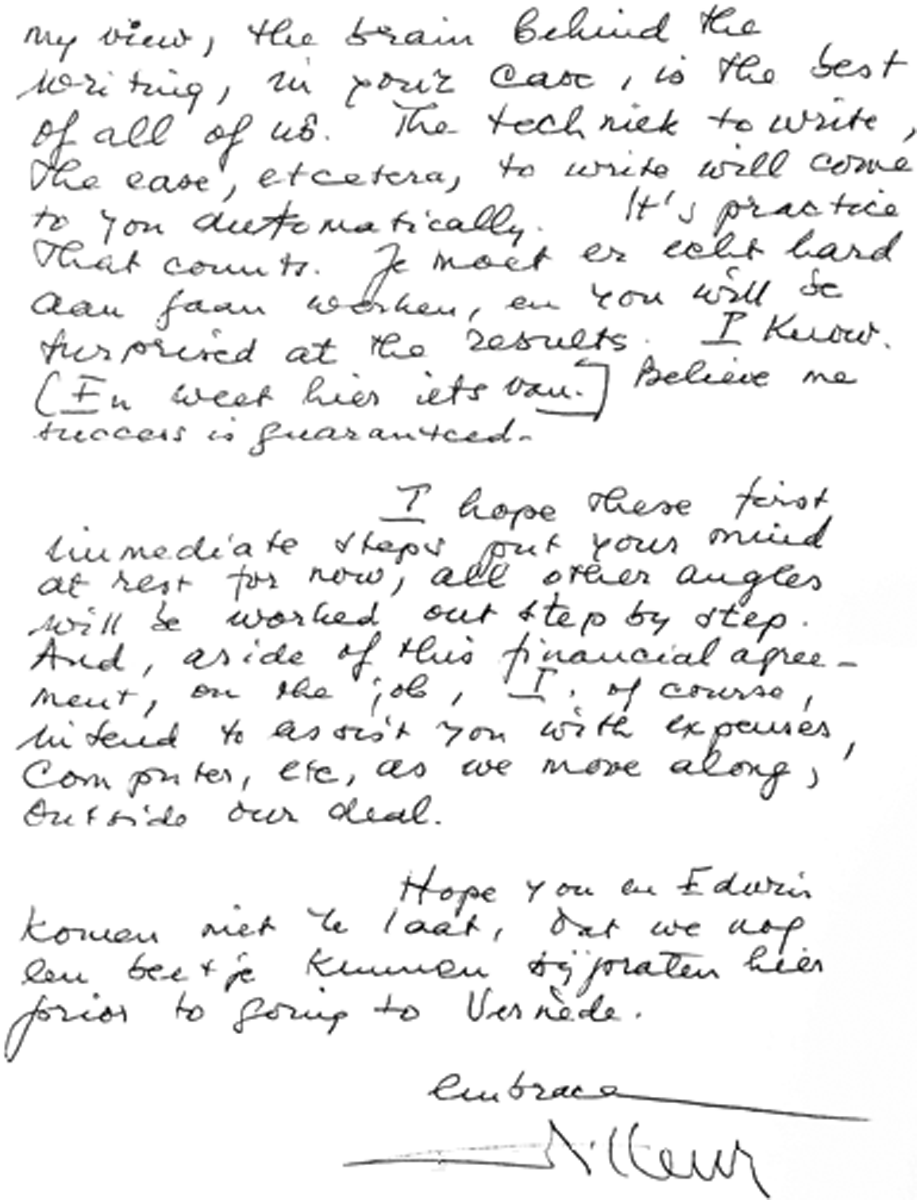 my view, the brain behind the
writing, in your case, is the best
of all of us. The techniek to write,
the ease, etcetera, to write will come
to you automatically. It's practice
that counts. Je moet er echt hard
aan gaan werken, en you will be
surprised at the results. I know.
(En weet hier iets van.] Believe me
success is guaranteed.
I hope these first
immediate steps put your mind
at rest for now, all other angles
will be worked out step by step.
And, aside of this financial agree-
ment, on the job, I, of course,
intend to assist you with expenses,
Computer, etc, as we move along,
outside our deal.
Hope you en Edwin
komen niet te laat, dat we nog
een beetje kunnen bijpraten hier
prior to going to Vernède.
embrace